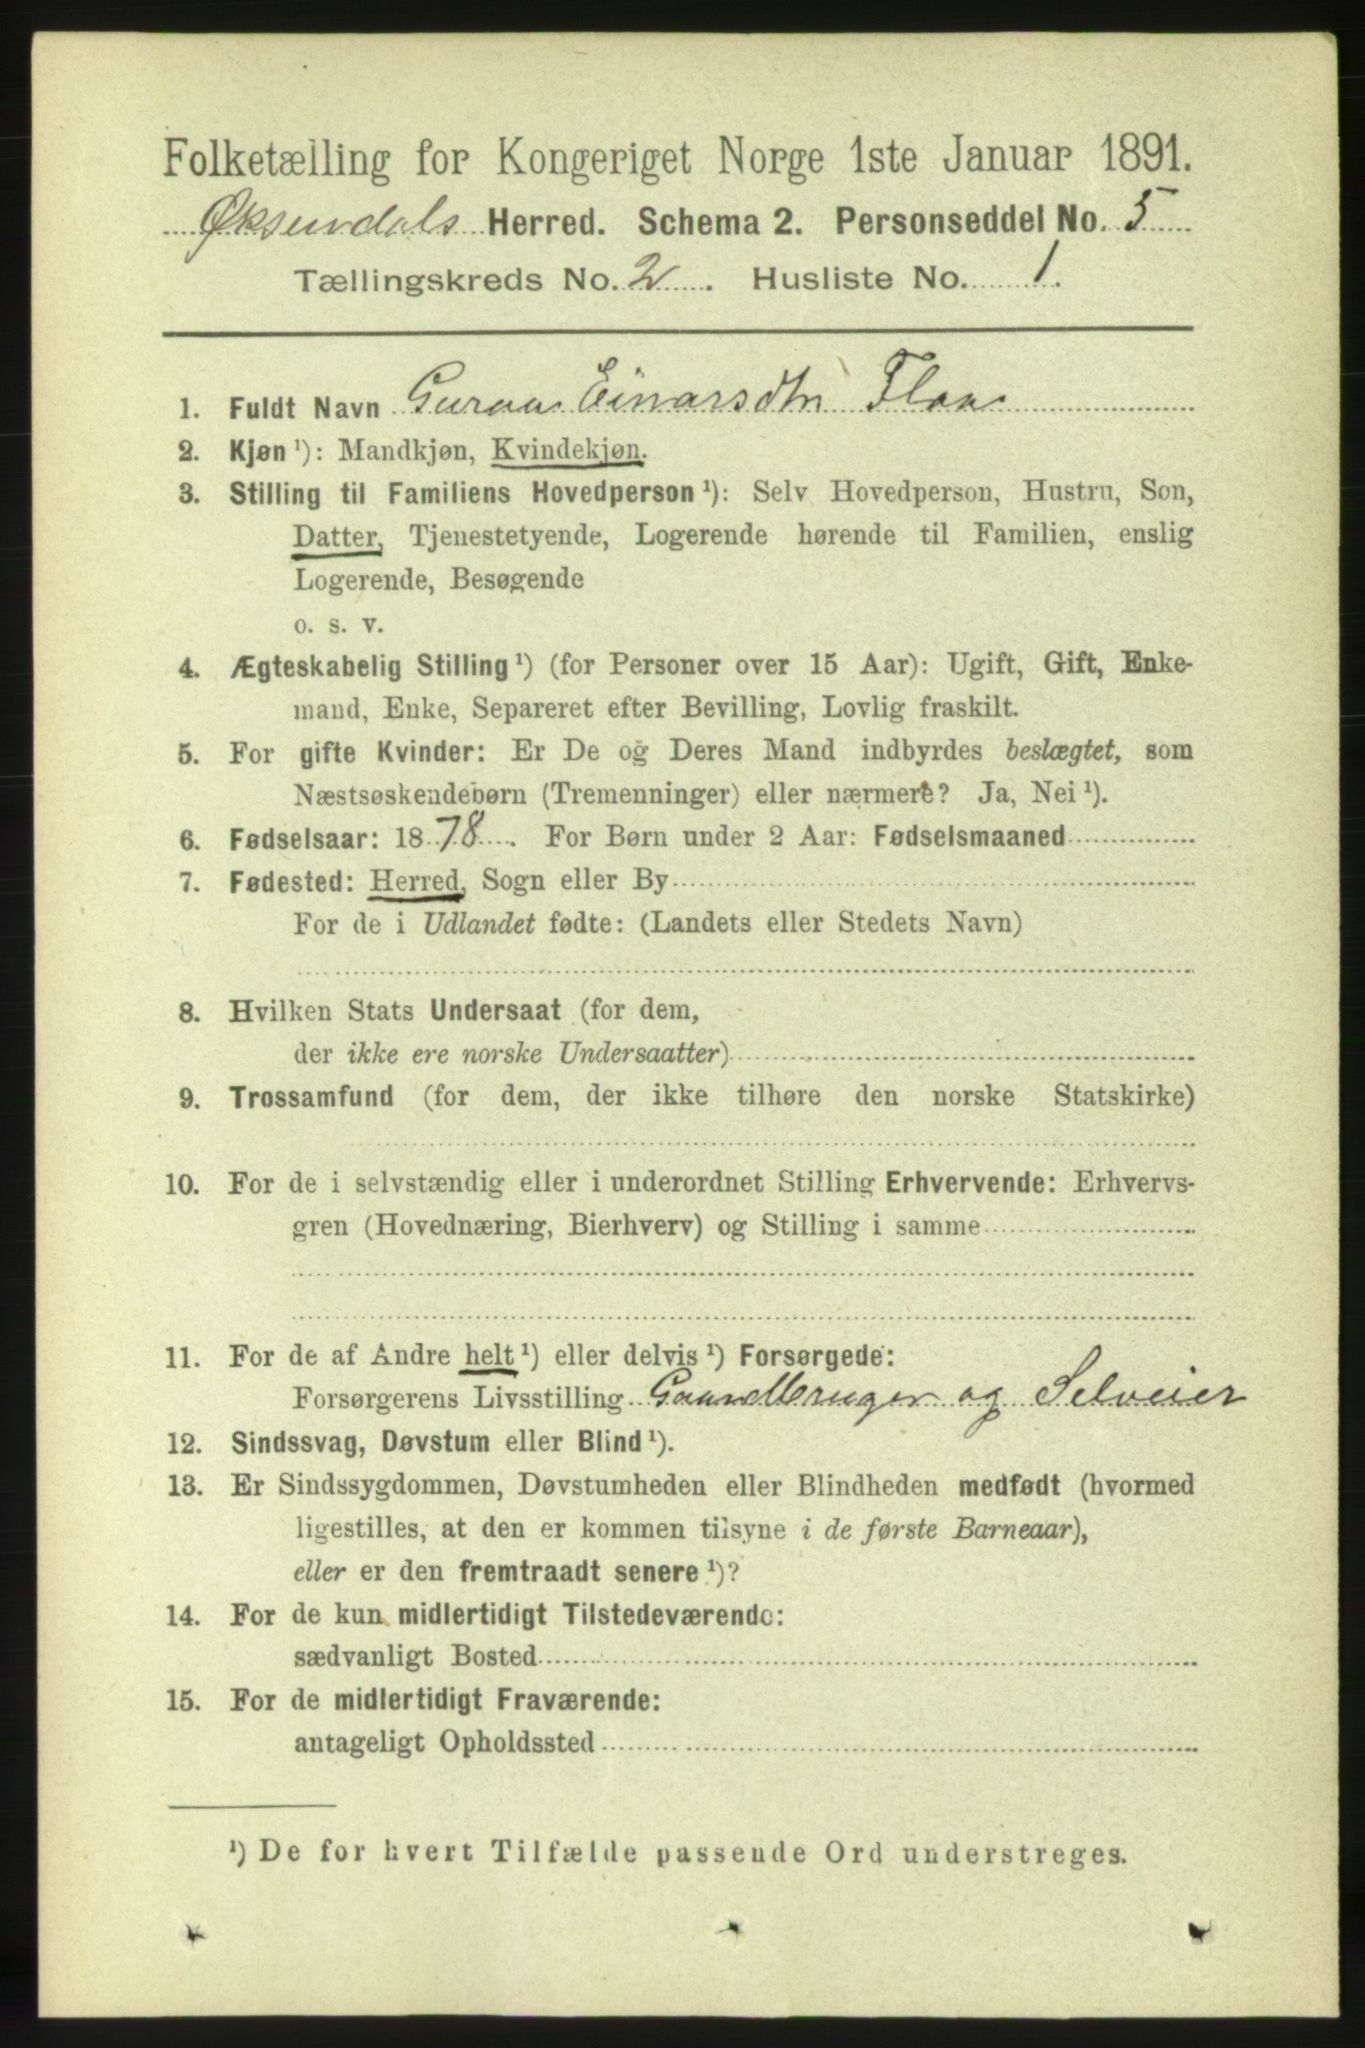 Folketælling for Kongeriget Norge 1ste Januar 1891.
Øksendals Herred. Schema 2. Personseddel No. 5
Tællingskreds No. 2. Husliste No. 1.
1. Fuldt Navn Guraa Einarsdtr Flaa
2. Kjøn ¹): Mandkjøn, Kvindekjøn.
3. Stilling til Familiens Hovedperson ¹): Selv Hovedperson, Hustru, Søn,
Datter, Tjenestetyende, Logerende hørende til Familien, enslig
Logerende, Besøgende
o. s. v.
4. Ægteskabelig Stilling ¹) (for Personer over 15 Aar): Ugift, Gift, Enke-
mand, Enke, Separeret efter Bevilling, Lovlig fraskilt.
5. For gifte Kvinder: Er De og Deres Mand indbyrdes beslægtet, som
Næstsøskendebørn (Tremenninger) eller nærmere? Ja, Nei ¹).
6. Fødselsaar: 1878. For Børn under 2 Aar: Fødselsmaaned
7. Fødested: Herred, Sogn eller By
For de i Udlandet fødte: (Landets eller Stedets Navn)
8. Hvilken Stats Undersaat (for dem,
der ikke ere norske Undersaatter)
9. Trossamfund (for dem, der ikke tilhøre den norske Statskirke)
10. For de i selvstændig eller i underordnet Stilling Erhvervende: Erhvervs-
gren (Hovednæring, Bierhverv) og Stilling i samme
11. For de af Andre helt ¹) eller delvis ¹) Forsørgede:
Forsørgerens Livsstilling Gaardbruger og Selveier
12. Sindssvag, Døvstum eller Blind ¹).
13. Er Sindssygdommen, Døvstumheden eller Blindheden medfødt (hvormed
ligestilles, at den er kommen tilsyne i de første Barneaar),
eller er den fremtraadt senere ¹)?
14. For de kun midlertidigt Tilstedeværende:
sædvanligt Bosted
15. For de midlertidigt Fraværende:
antageligt Opholdssted
¹) De for hvert Tilfælde passende Ord understreges.